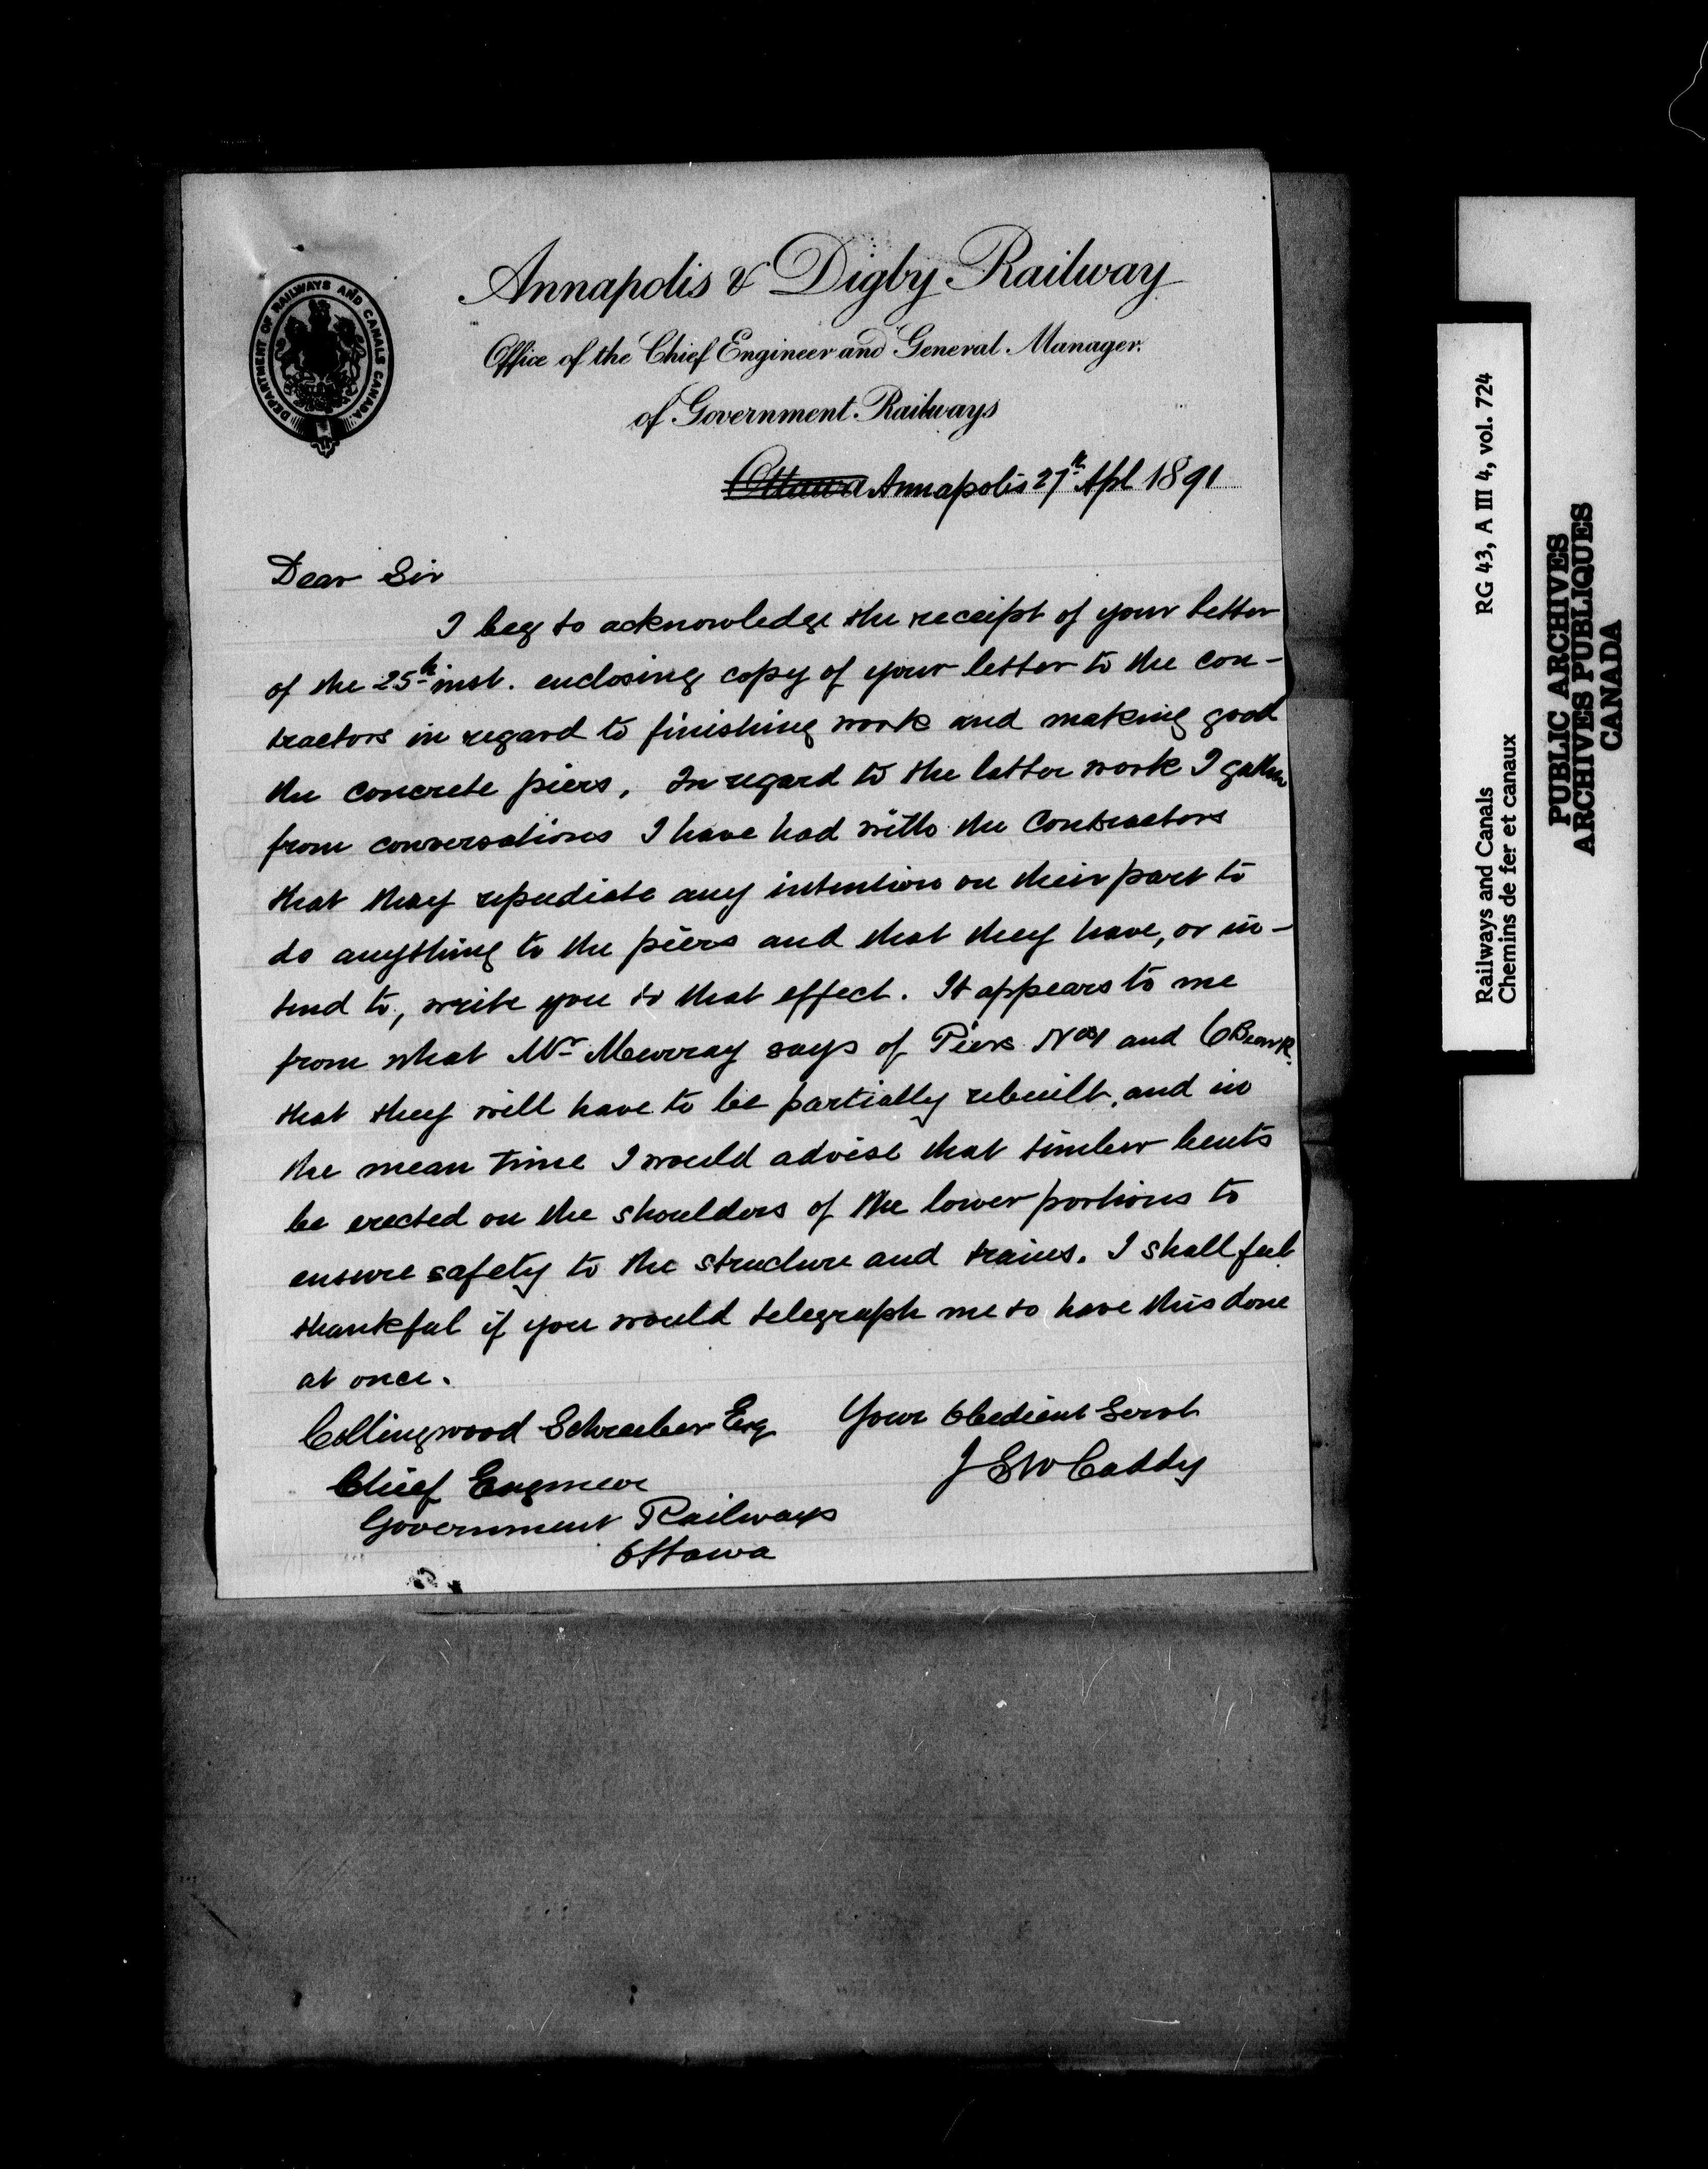 Annapolis & Digby Railway
Office of the Chief Engineer and General Manager.
of Government Railways
DEPARTMENT OF RAILWAYS AND CANALS CANADA
Ottawa Annapolis 27th Apl 1891
Dear Sir
I beg to acknowledge the receipt of your letter
of the 25th inst. enclosing copy of your letter to the con-
tractors in regard to finishing work and making good
the concrete piers. In regard to the latter work I gather
from conversations I have had with the Contractors
that they repudiate any intention on their part to
do anything to the piers and that they have, or in-
tend to, write you to that effect. It appears to me
from what Mr Murray says of Piers Nos 1 and 6 Bear R.
that they will have to be partially rebuilt, and in
the mean time I would advise that timber bents
be erected on the shoulders of the lower portions to
ensure safety to the structure and trains. I shall feel
thankful if you would telegraph me to have this done
at once.
Your Obedient Servt
J S W Caddy
Collingwood Schreiber Esq
Chief Engineer
Government Railways
Ottawa
Railways and Canals RG 43, A III 4, vol. 724
Chemins de fer et canaux
PUBLIC ARCHIVES
ARCHIVES PUBLIQUES
CANADA